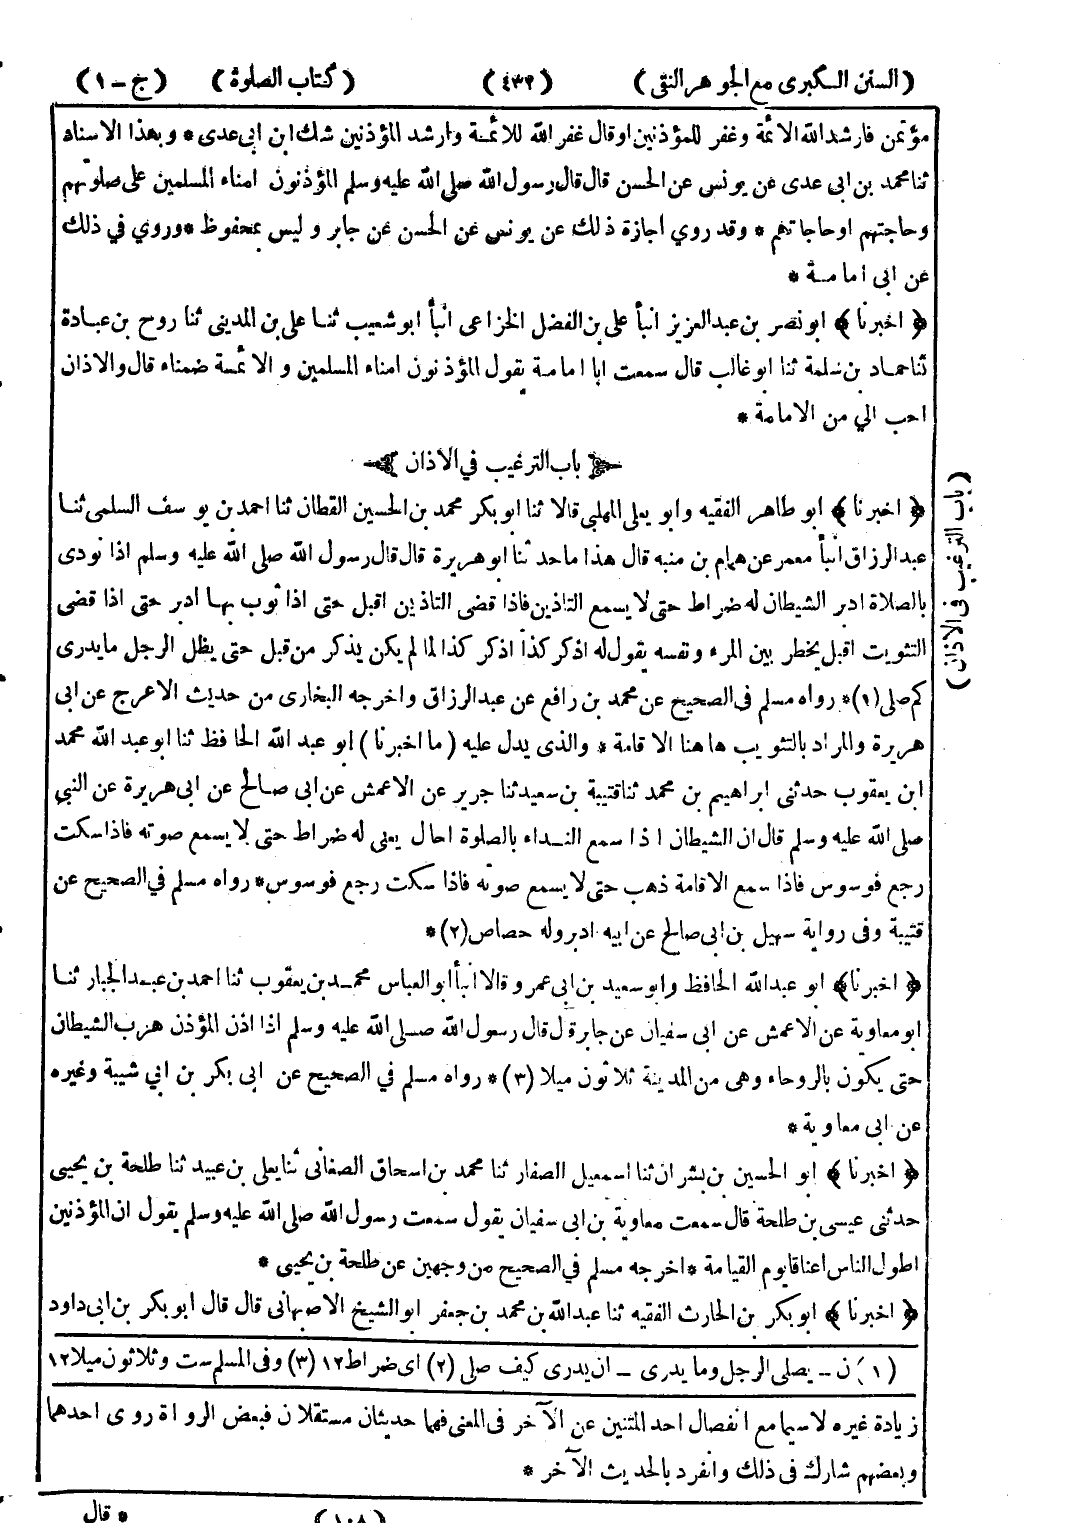 (السنن الكبرى مع الجوهر النقى) (٤٣٢) (كتاب الصلوة) (ج - ١)
مؤتمن فارشد الله الائمة وغفر للمؤذنين اوقال غفر الله للائمة وارشد المؤذنين شك ابن ابى عدى * وبهذا الاسناد
ثنا محمد بن ابى عدى عن يونس عن الحسن قال قال رسول الله صلى الله عليه وسلم المؤذنون امناء المسلمين على صلوتهم
وحاجتهم اوحاجاتهم * وقد روي أجازة ذلك عن يونس عن الحسن عن جابر وليس بمحفوظ * وروي في ذلك
عن ابى امامة *
﴿ اخبرنا ﴾ ابو نصر بن عبد العزيز انبأ على بن الفضل الخزاعى انبأ ابو شعيب ثنا على بن المدينى ثنا روح بن عبادة
ثنا حماد بن سلمة ثنا ابو غالب قال سمعت ابا امامة يقول المؤذنون امناء المسلمين والائمة ضمناء قال والاذان
احب الي من الامامة *
باب الترغيب في الاذان
﴿ اخبرنا ﴾ ابو طاهر الفقيه وابو يعلى المهلبى قالا ثنا ابو بكر محمد بن الحسين القطان ثنا احمد بن يوسف السلمى ثنا
عبد الرزاق انبأ معمر عن همام بن منبه قال هذا ما حدثنا ابو هريرة قال قال رسول الله صلى الله عليه وسلم اذا نودى
بالصلاة ادبر الشيطان له ضراط حتى لا يسمع التاذين فاذا قضى التاذين اقبل حتى اذا ثوب بها ادبر حتى اذا قضى
التثويت اقبل يخطر بين المرء ونفسه يقول له اذكر كذا اذكر كذا لما لم يكن يذكر من قبل حتى يظل الرجل ما يدرى
كم صلى (١) * رواه مسلم فى الصحيح عن محمد بن رافع عن عبد الرزاق واخرجه البخارى من حديث الاعرج عن ابى
هريرة والمراد بالتثويب هاهنا الاقامة * والذى يدل عليه (ما اخبرنا) ابو عبد الله الحافظ ثنا ابو عبد الله محمد
ابن يعقوب حدثنى ابراهيم بن محمد ثنا قتيبة بن سعيد ثنا جرير عن الاعمش عن ابى صالح عن ابى هريرة عن النبي
صلى الله عليه وسلم قال ان الشيطان اذا سمع النداء بالصلوة احال يعنى له ضراط حتى لا يسمع صوته فاذا سكت
رجع فوسوس فاذا سمع الاقامة ذهب حتى لا يسمع صوته فاذا سكت رجع فوسوس * رواه مسلم في الصحيح عن
قتيبة وفى رواية سهيل بن ابى صالح عن ابيه ادبر وله حصاص (٢) *
﴿ اخبرنا ﴾ ابو عبد الله الحافظ وابو سعيد بن ابى عمرو قالا انبأ ابو العباس محمد بن يعقوب ثنا احمد بن عبد الجبار ثنا
ابو معاوية عن الاعمش عن ابى سفيان عن جابر قال قال رسول الله صلى الله عليه وسلم اذا اذن المؤذن هرب الشيطان
حتى يكون بالروحاء وهى من المدينة ثلاثون ميلا (٣) * رواه مسلم في الصحيح عن ابى بكر بن ابي شيبة وغيره
عن ابى معاوية *
﴿ اخبرنا ﴾ ابو الحسين بن بشران ثنا اسمعيل الصفار ثنا محمد بن اسحاق الصغانى ثنا يعلى بن عبيد ثنا طلحة بن يحيى
حدثنى عيسى بن طلحة قال سمعت معاوية بن ابى سفيان يقول سمعت رسول الله صلى الله عليه وسلم يقول ان المؤذنين
اطول الناس اعناقا يوم القيامة * اخرجه مسلم في الصحيح من وجهين عن طلحة بن يحيى *
﴿ اخبرنا ﴾ ابو بكر بن الحارث الفقيه ثنا عبد الله بن محمد بن جعفر ابو الشيخ الاصبهانى قال قال ابو بكر بن ابى داود
(باب الترغيب فى الاذان)
(١) ن - يصلى الرجل وما يدرى - ان يدرى كيف صلى (٢) اى ضراط ١٢ (٣) وفى المسلم ست وثلاثون ميلا ١٢
زيادة غيره لا سيما مع انفصال احد المتنين عن الآخر فى المعنى فهما حديثان مستقلان فبعض الرواة روى احدهما
وبعضهم شارك فى ذلك وانفرد بالحديث الآخر *
* قال
(١٠٨)